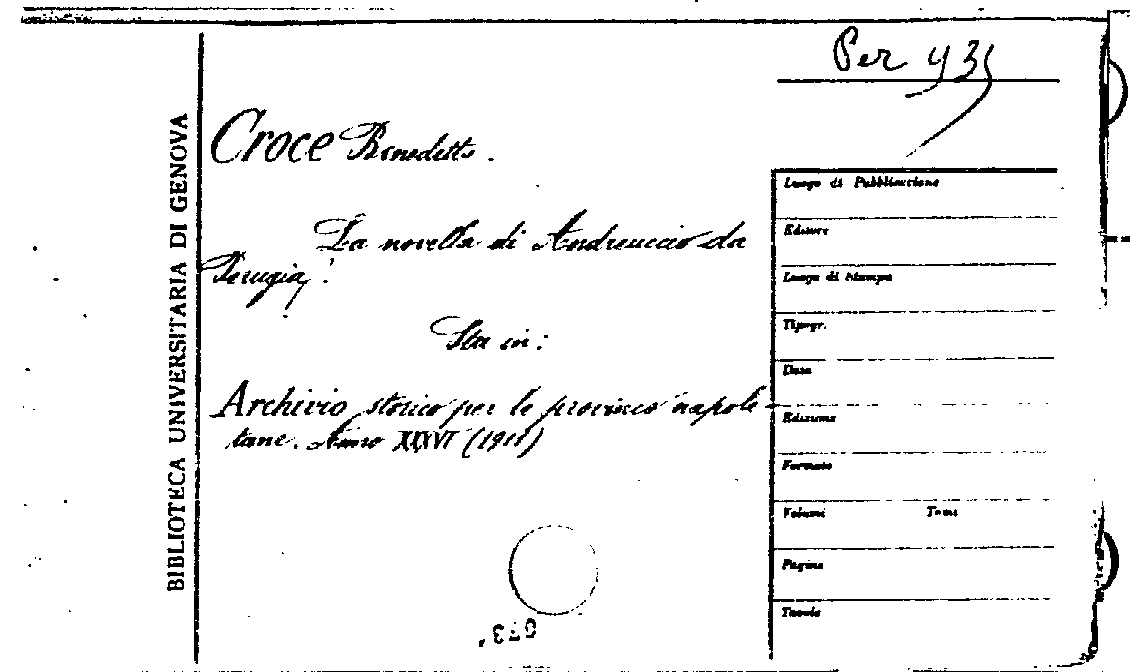 Per 935
BIBLIOTECA UNIVERSITARIA DI GENOVA
Croce Benedetto.
La novella di Andreuccio da
Perugia.
Sta in:
Archivio storico per le provincie napole-
tane. Anno XXXVI (1911)
Luogo di Pubblicazione
Editore
Luogo di Stampa
Tipogr.
Data
Edizione
Formato
Volumi Tomi
Pagine
Tavole